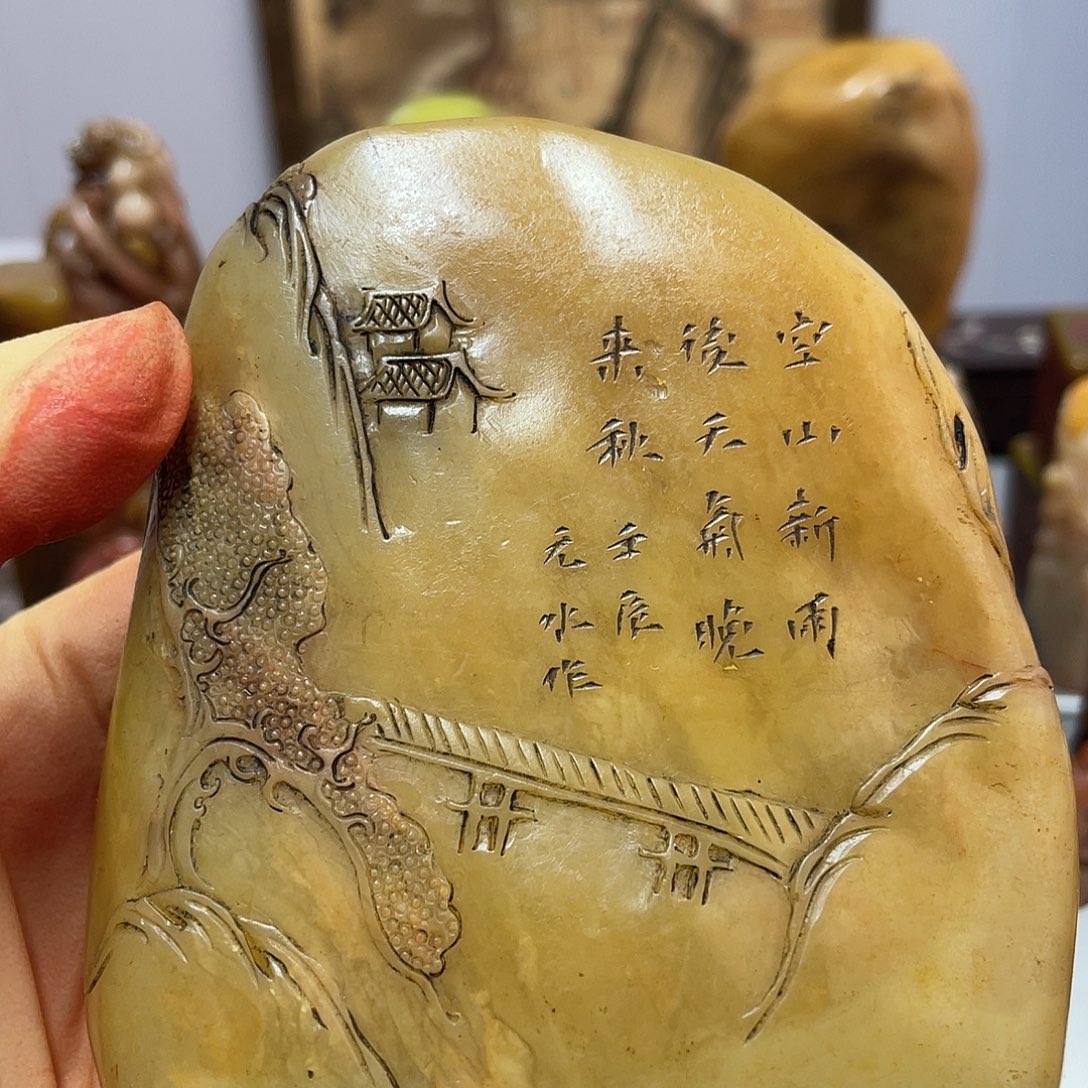 空山新雨
後天氣晚
来秋
壬辰
元水作